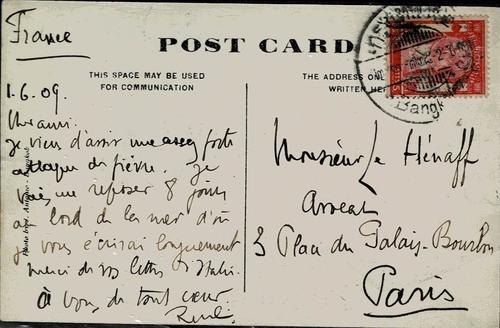 France
POST CARD
THIS SPACE MAY BE USED
FOR COMMUNICATION
THE ADDRESS ON
WRITTEN HE
Bangk
1.6.09.
Mon ami.
Je viens d'avoir une assez forte
attaque de fièvre. Je
vais me reposer 8 jours
au bord de la mer d'où
je vous écrirai longuement
merci de vos lettres d'Italie.
à vous, de tout cœur.
Monsieur Le Hénaff
Avocat
3 Place du Palais-Bourbon
Paris